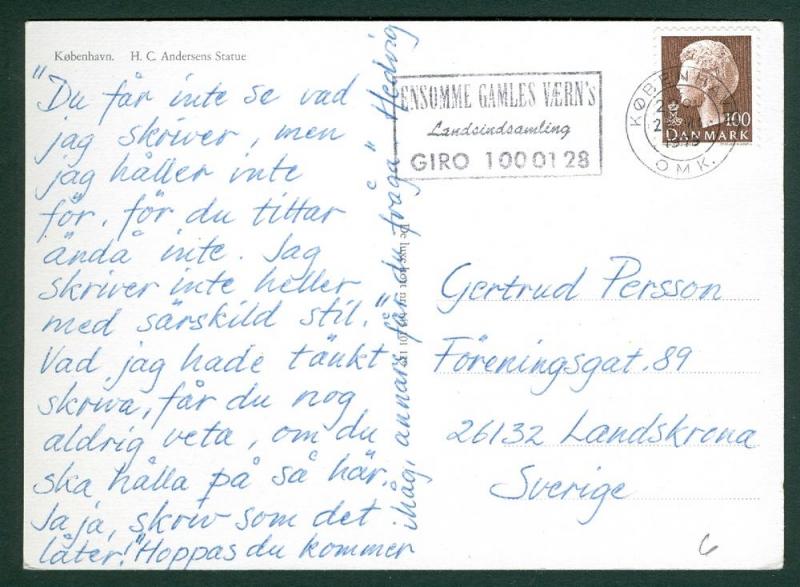 København. H. C. Andersens Statue
"Du får inte se vad
jag skriver, men
jag håller inte
för, för du tittar
ändå inte. Jag
skriver inte heller
med särskild stil."
Vad jag hade tänkt
skriva, får du nog
aldrig veta, om du
ska hålla på så här.
Ja ja, skriv som det
låter!" Hoppas du kommer
ihåg, annars får du fråga" Hedvig
ENSOMME GAMLES VÆRN's
Landsindsamling
GIRO 1000128
KØBENHAVN
OMK.
100
DANMARK
Gertrud Persson
Föreningsgat. 89
26132 Landskrona
Sverige
6